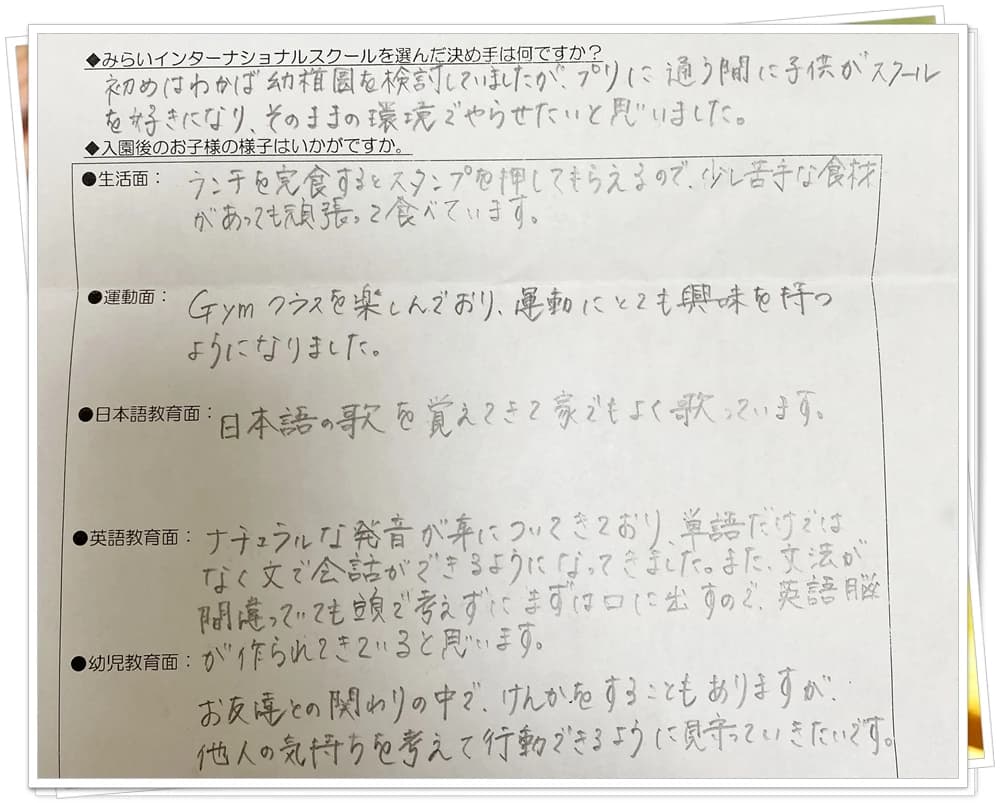 ◆みらいインターナショナルスクールを選んだ決め手は何ですか？
初めはわかば幼稚園を検討していましたが、プリに通う間に子供がスクール
を好きになり、そのままの環境でやらせたいと思いました。
◆入園後のお子様の様子はいかがですか。
●生活面： ランチを完食するとスタンプを押してもらえるので、少し苦手な食材
があっても頑張って食べています。
●運動面： Gymクラスを楽しんでおり、運動にとても興味を持つ
ようになりました。
●日本語教育面： 日本語の歌を覚えてきて家でもよく歌っています。
●英語教育面： ナチュラルな発音が身についてきており、単語だけでは
なく文で会話ができるようになってきました。また、文法が
間違っていても頭で考えずにまずは口に出すので、英語脳
が作られてきていると思います。
●幼児教育面：
お友達との関わりの中で、けんかをすることもありますが、
他人の気持ちを考えて行動できるように見守っていきたいです。